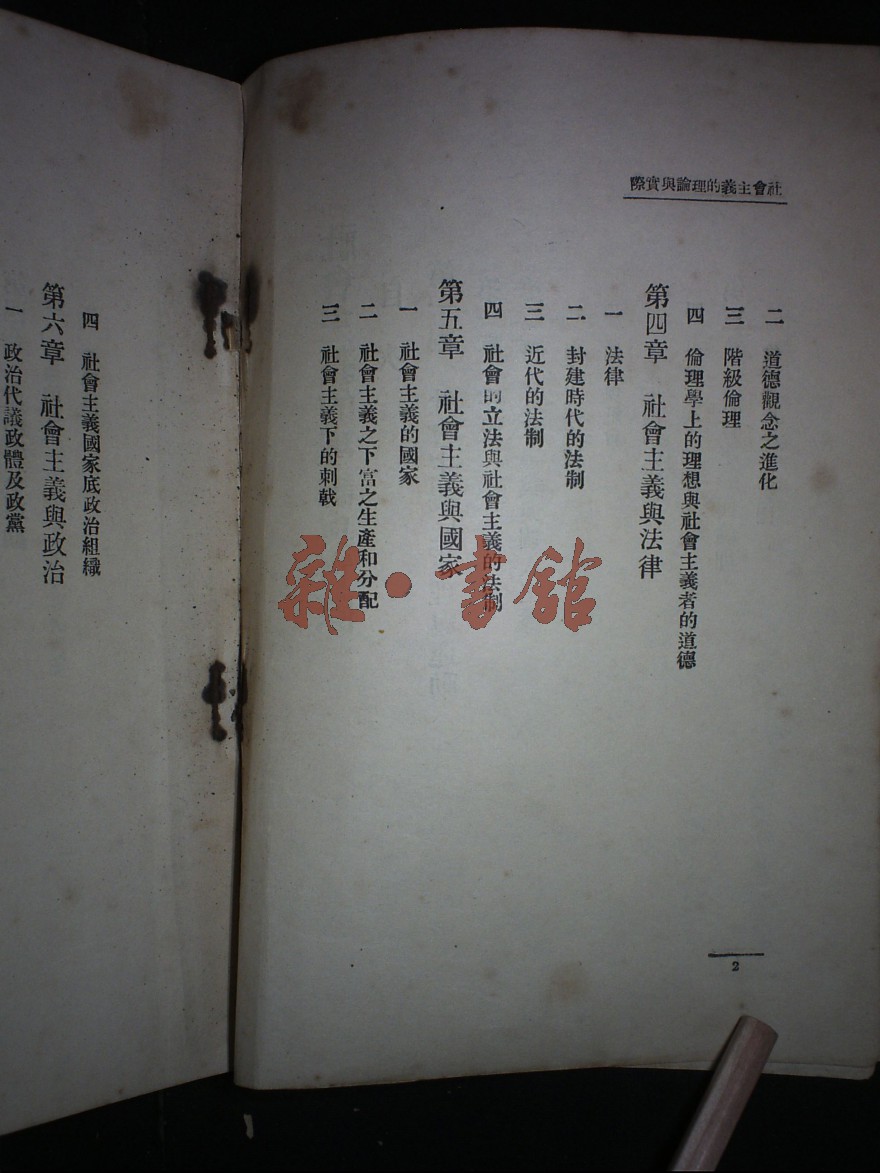 社會主義的理論與實際
二 道德觀念之進化
三 階級倫理
四 倫理學上的理想與社會主義者的道德
第四章 社會主義與法律
一 法律
二 封建時代的法制
三 近代的法制
四 社會的立法與社會主義的法制
第五章 社會主義與國家
一 社會主義的國家
二 社會主義之下富之生產和分配
三 社會主義下的刺戟
2
四 社會主義國家底政治組織
第六章 社會主義與政治
一 政治代議政體及政黨
雜·書館